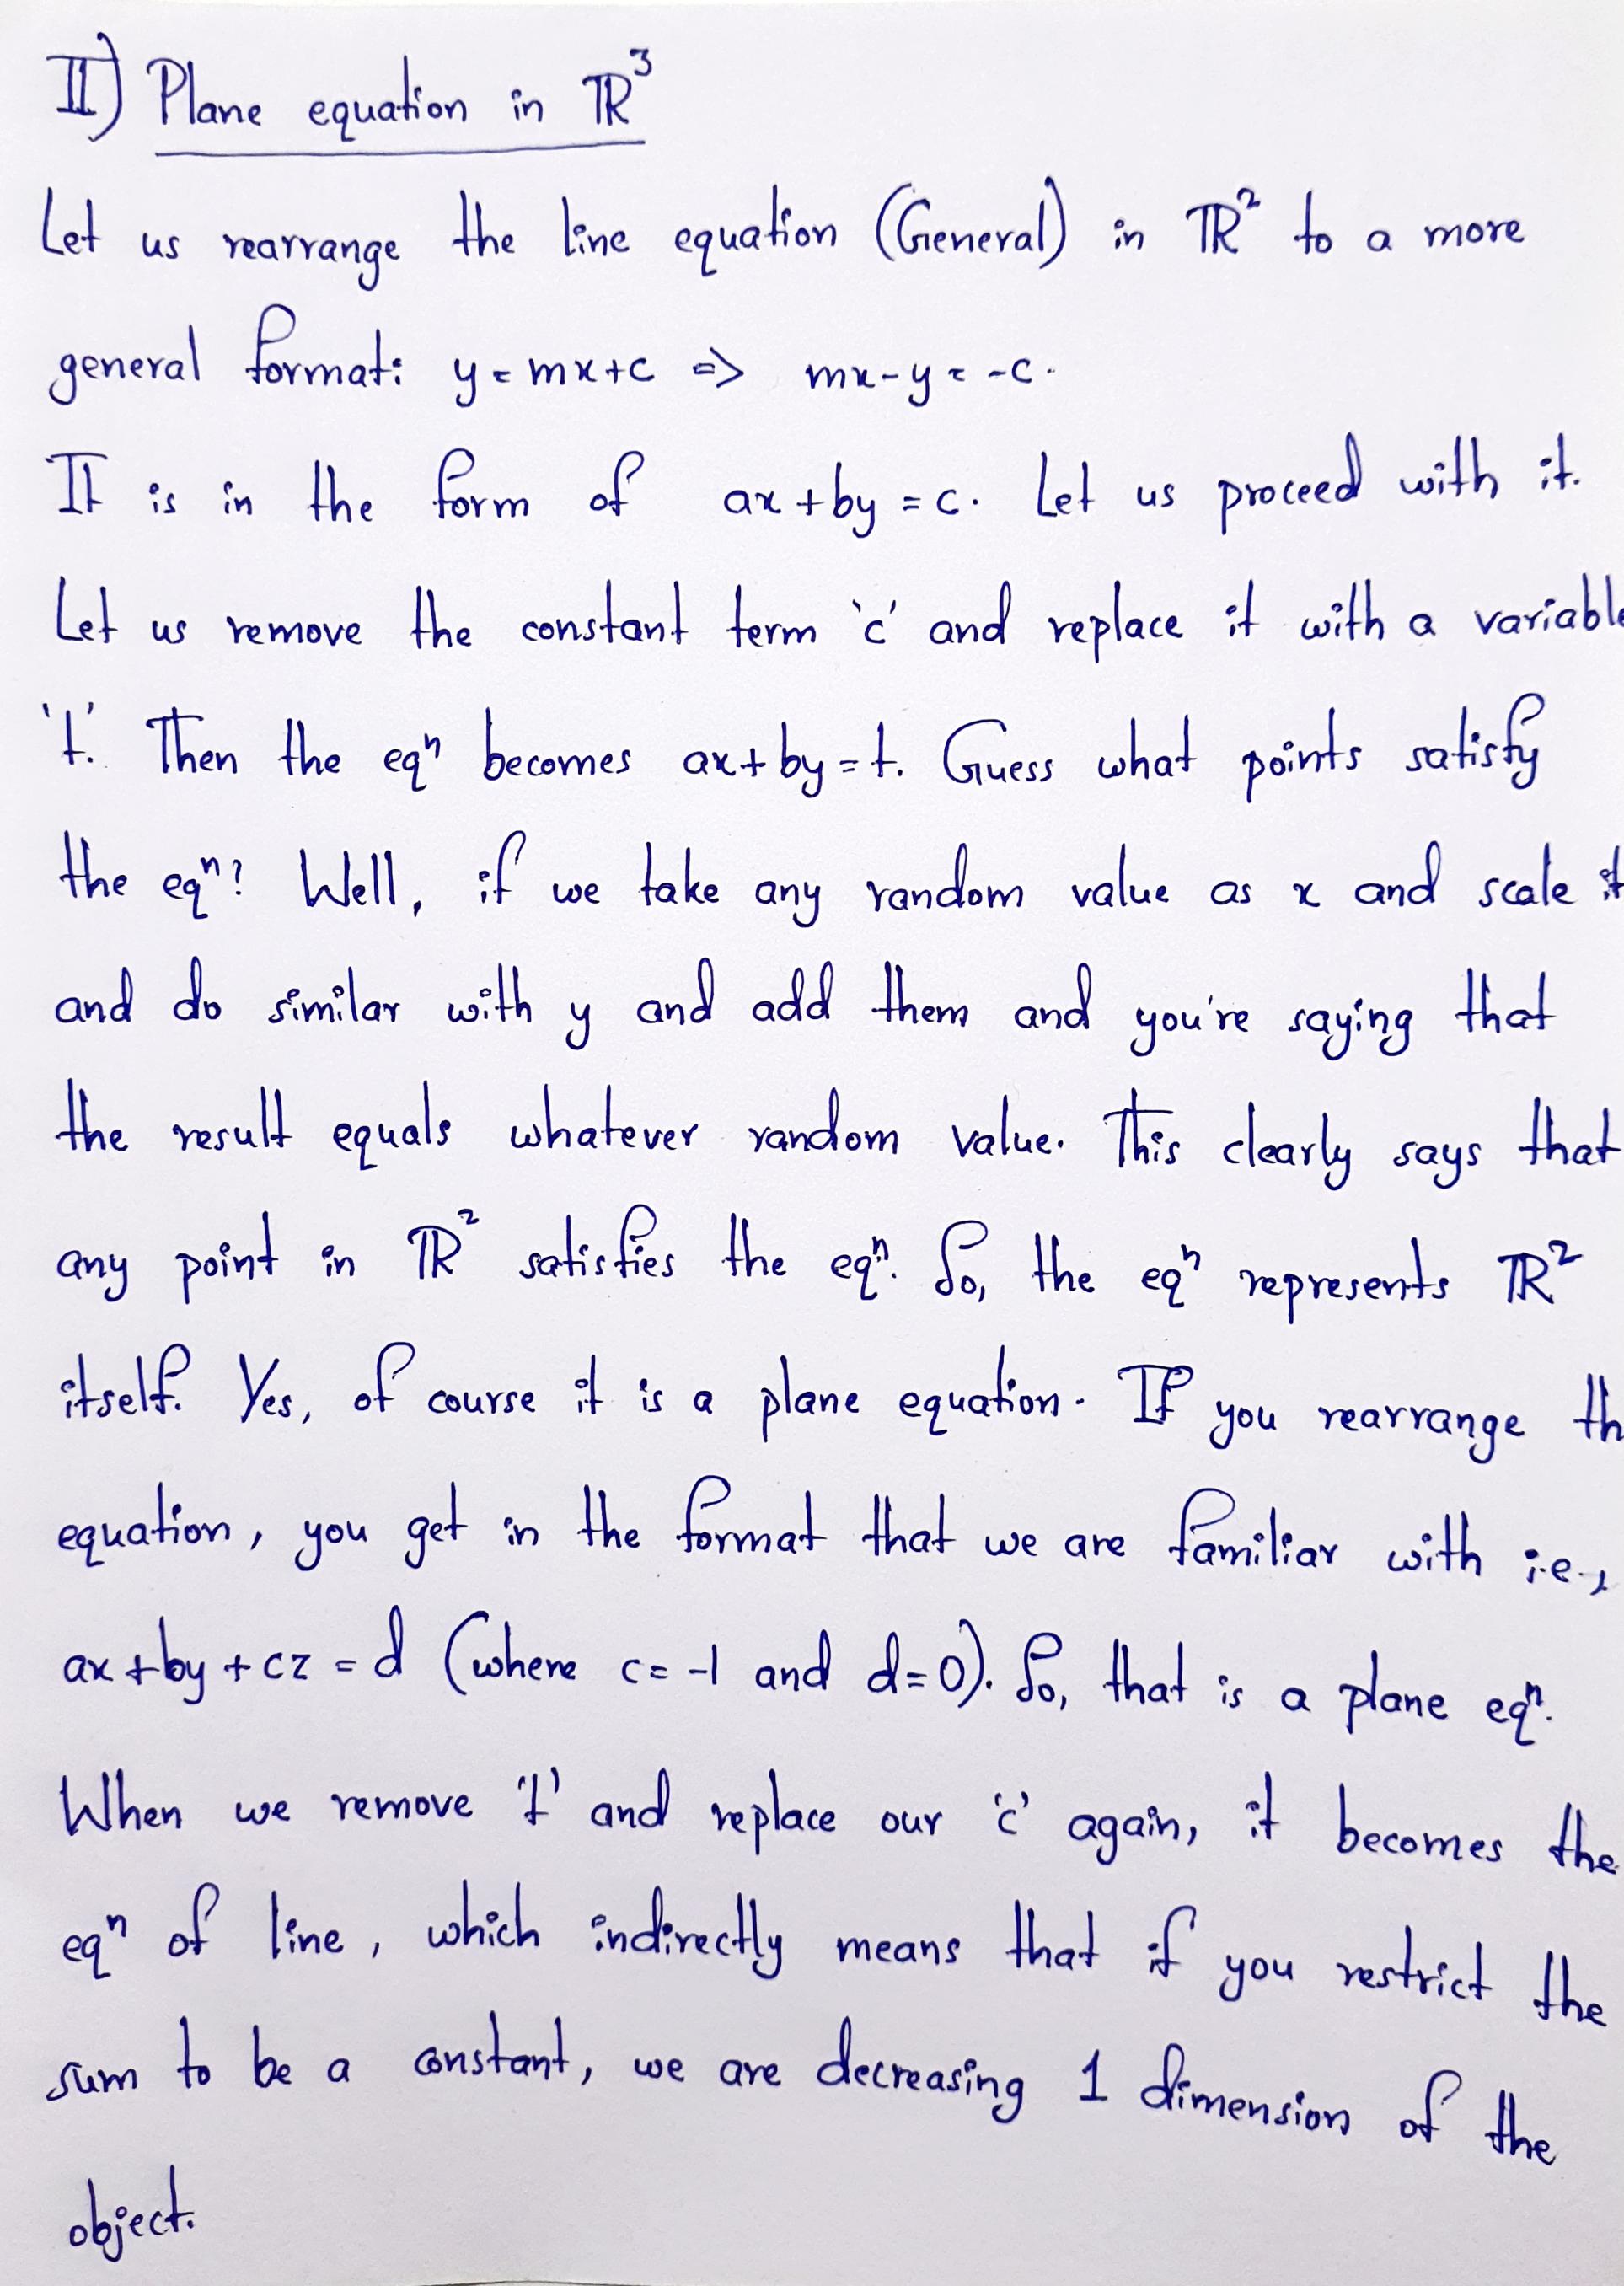 II) Plane equation in ℝ³
Let us rearrange the line equation (General) in ℝ² to a more
general format: y = mx+c => mx-y = -c.
It is in the form of ax+by = c. Let us proceed with it.
Let us remove the constant term 'c' and replace it with a variable
't'. Then the eqⁿ becomes ax+by=t. Guess what points satisfy
the eqⁿ? Well, if we take any random value as x and scale it
and do similar with y and add them and you're saying that
the result equals whatever random value. This clearly says that
any point in ℝ² satisfies the eqⁿ. So, the eqⁿ represents ℝ²
itself. Yes, of course it is a plane equation. If you rearrange th
equation, you get in the format that we are familiar with i.e.,
ax+by+cz = d (where c=-1 and d=0). So, that is a plane eqⁿ.
When we remove 't' and replace our 'c' again, it becomes the
eqⁿ of line, which indirectly means that if you restrict the
sum to be a constant, we are decreasing 1 dimension of the
object.